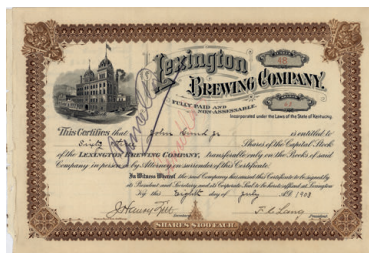 48
Lexington
Brewing Company.
Fully Paid and
Non-Assessable.
Incorporated under the Laws of the State of Kentucky.
This Certifies that John is entitled to
Shares of the Capital Stock
of the Lexington Brewing Company, transferable only on the Books of said
Company in person or by Attorney on surrender of this Certificate.
In Witness Whereof, the said Company has caused this Certificate to be signed by
its President and Secretary and its Corporate Seal to be hereto affixed at Lexington
Ky this Eighth day of July 1903
Secretary
President
Shares $100 Each